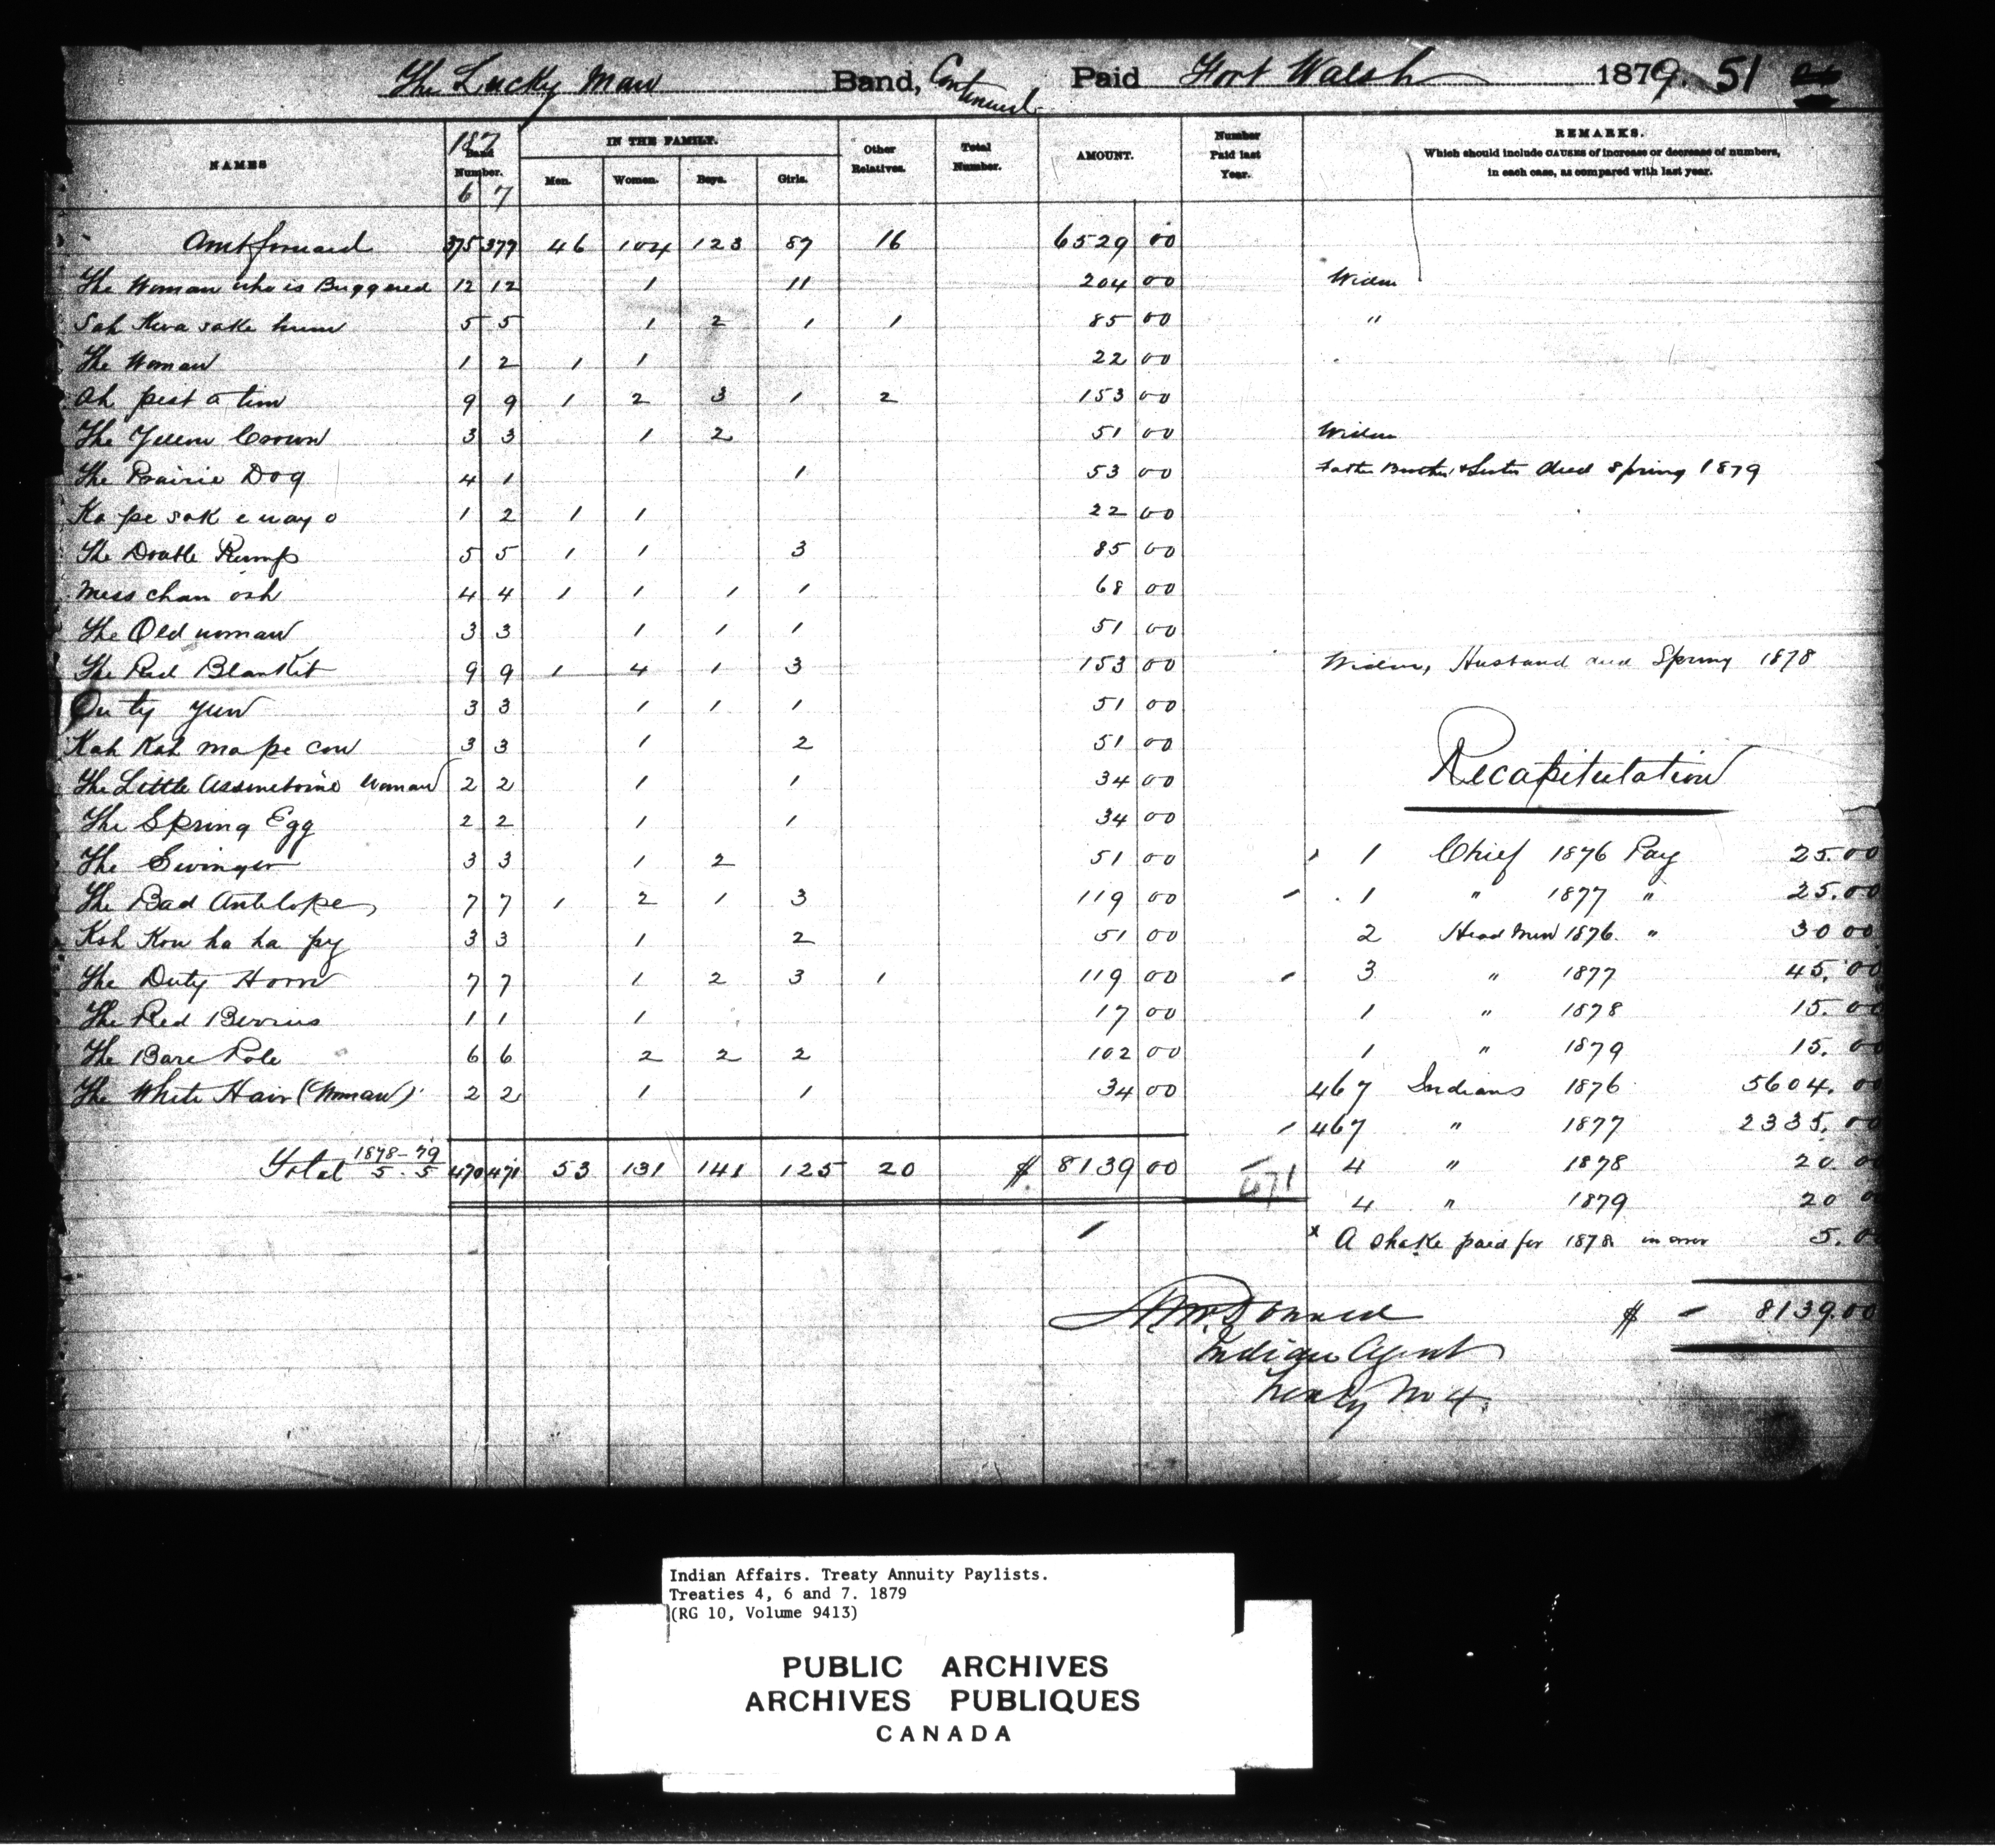 The Lucky Man Band, Continued Paid Fort Walsh 1879. 51
NAMES 187 Band Number. 6 7 IN THE FAMILY. Men. Women. Boys. Girls. Other Relatives. Total Number. AMOUNT. Number Paid last Year. REMARKS. Which should include CAUSES of increase or decrease of numbers, in each case, as compared with last year.
Amt forward 375 377 46 104 123 87 16 6529 00
The Woman who is Buggered 12 12 1 11 204 00 Widow
Sah Kwa sake hum 5 5 1 2 1 1 85 00 "
The Woman 1 2 1 1 22 00
Ah pist a tim 9 9 1 2 3 1 2 153 00
The Yellow Crown 3 3 1 2 51 00 Widow
The Prairie Dog 4 1 1 53 00 Father Brother & Sister died Spring 1879
Ka pe sak e way o 1 2 1 1 22 00
The Double Rump 5 5 1 1 3 85 00
Miss chan osh 4 4 1 1 1 1 68 00
The Old woman 3 3 1 1 1 51 00
The Red Blanket 9 9 1 4 1 3 153 00 Widow, Husband died Spring 1878
3 3 1 1 1 51 00
Kah Kah ma pe cow 3 3 1 2 51 00
The Little Assineboine Woman 2 2 1 1 34 00
The Spring Egg 2 2 1 1 34 00
The Swinger 3 3 1 2 51 00
The Bad Antelope 7 7 1 2 1 3 119 00
Kah Kow ha ha py 3 3 1 2 51 00
The Duty Horn 7 7 1 2 3 1 119 00
The Red Berries 1 1 1 17 00
The Bare Pole 6 6 2 2 2 102 00
The White Hair (Woman) 2 2 1 1 34 00
Total 1878-79 5-5 470 471 53 131 141 125 20 $ 8139 00 471
Recapitulation
1 Chief 1876 Pay 25.00
1 " 1877 " 25.00
2 Head Men 1876 " 30 00
3 " 1877 45.00
1 " 1878 15.00
1 " 1879 15.00
467 Indians 1876 5604.00
467 " 1877 2335.00
4 " 1878 20.00
4 " 1879 20 0
x A Shake paid for 1878 in error 5.0
$ 8139.00
A McDonald
Indian Agent
Treaty No 4.
Indian Affairs. Treaty Annuity Paylists.
Treaties 4, 6 and 7. 1879
(RG 10, Volume 9413)
PUBLIC ARCHIVES
ARCHIVES PUBLIQUES
CANADA